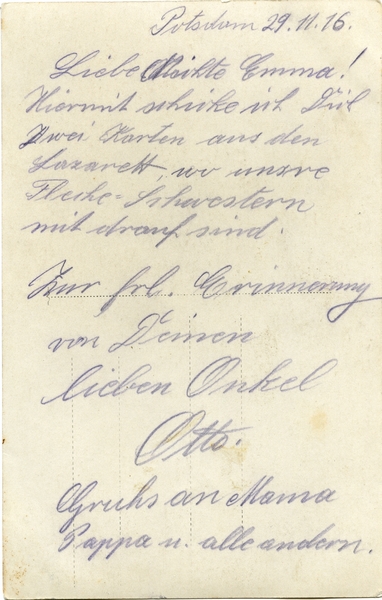 Potsdam 29.11.16.
Liebe Nichte Emma!
Hiermit schicke ich Dir
zwei Karten aus den
Lazarett, wo unsre
Schwestern
mit drauf sind.
Zur frl. Erinnerung
von Deinen
lieben Onkel
Otto.
Gruhs an Mama
Pappa u. alle andern.